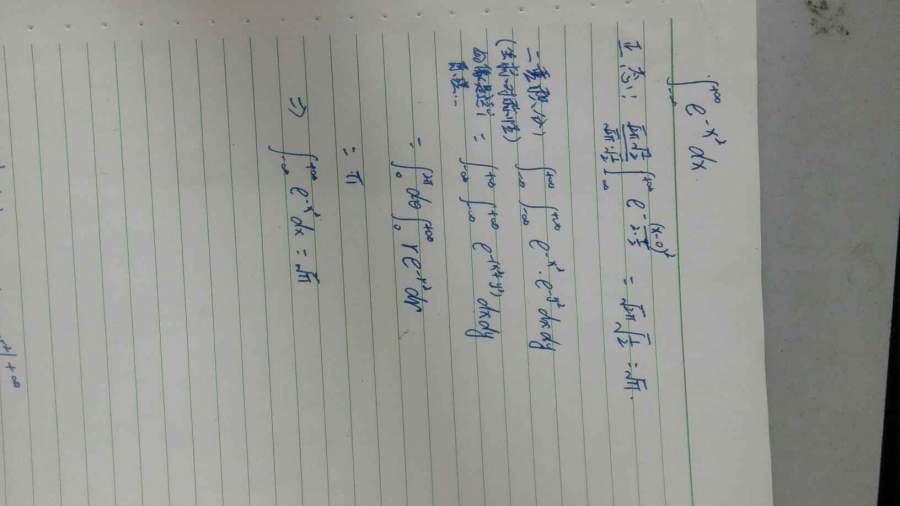 ∫_{-∞}^{+∞} e^{-x²} dx.
正态: √2π √½ / √2π·√½ ∫_{-∞}^{+∞} e^{-(x-0)²/2·½} = √2π √½ = √π.
二重积分 ∫_{-∞}^{+∞} ∫_{-∞}^{+∞} e^{-x²}·e^{-y²} dxdy
= ∫_{-∞}^{+∞} ∫_{-∞}^{+∞} e^{-(x²+y²)} dxdy
= ∫_0^{2π} dθ ∫_0^{+∞} r e^{-r²} dr
= π
⇒ ∫_{-∞}^{+∞} e^{-x²} dx = √π
+∞